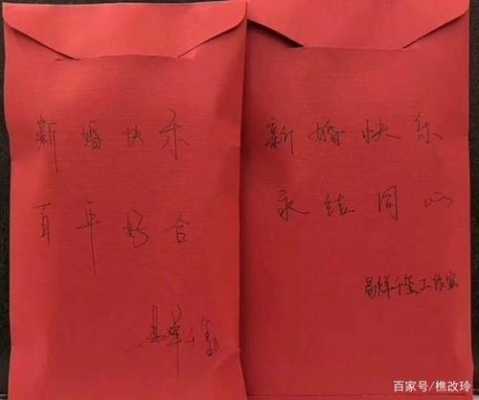 新婚快乐
百年好合
新婚快乐
永结同心
易烊千玺工作室
百家号/樵改玲